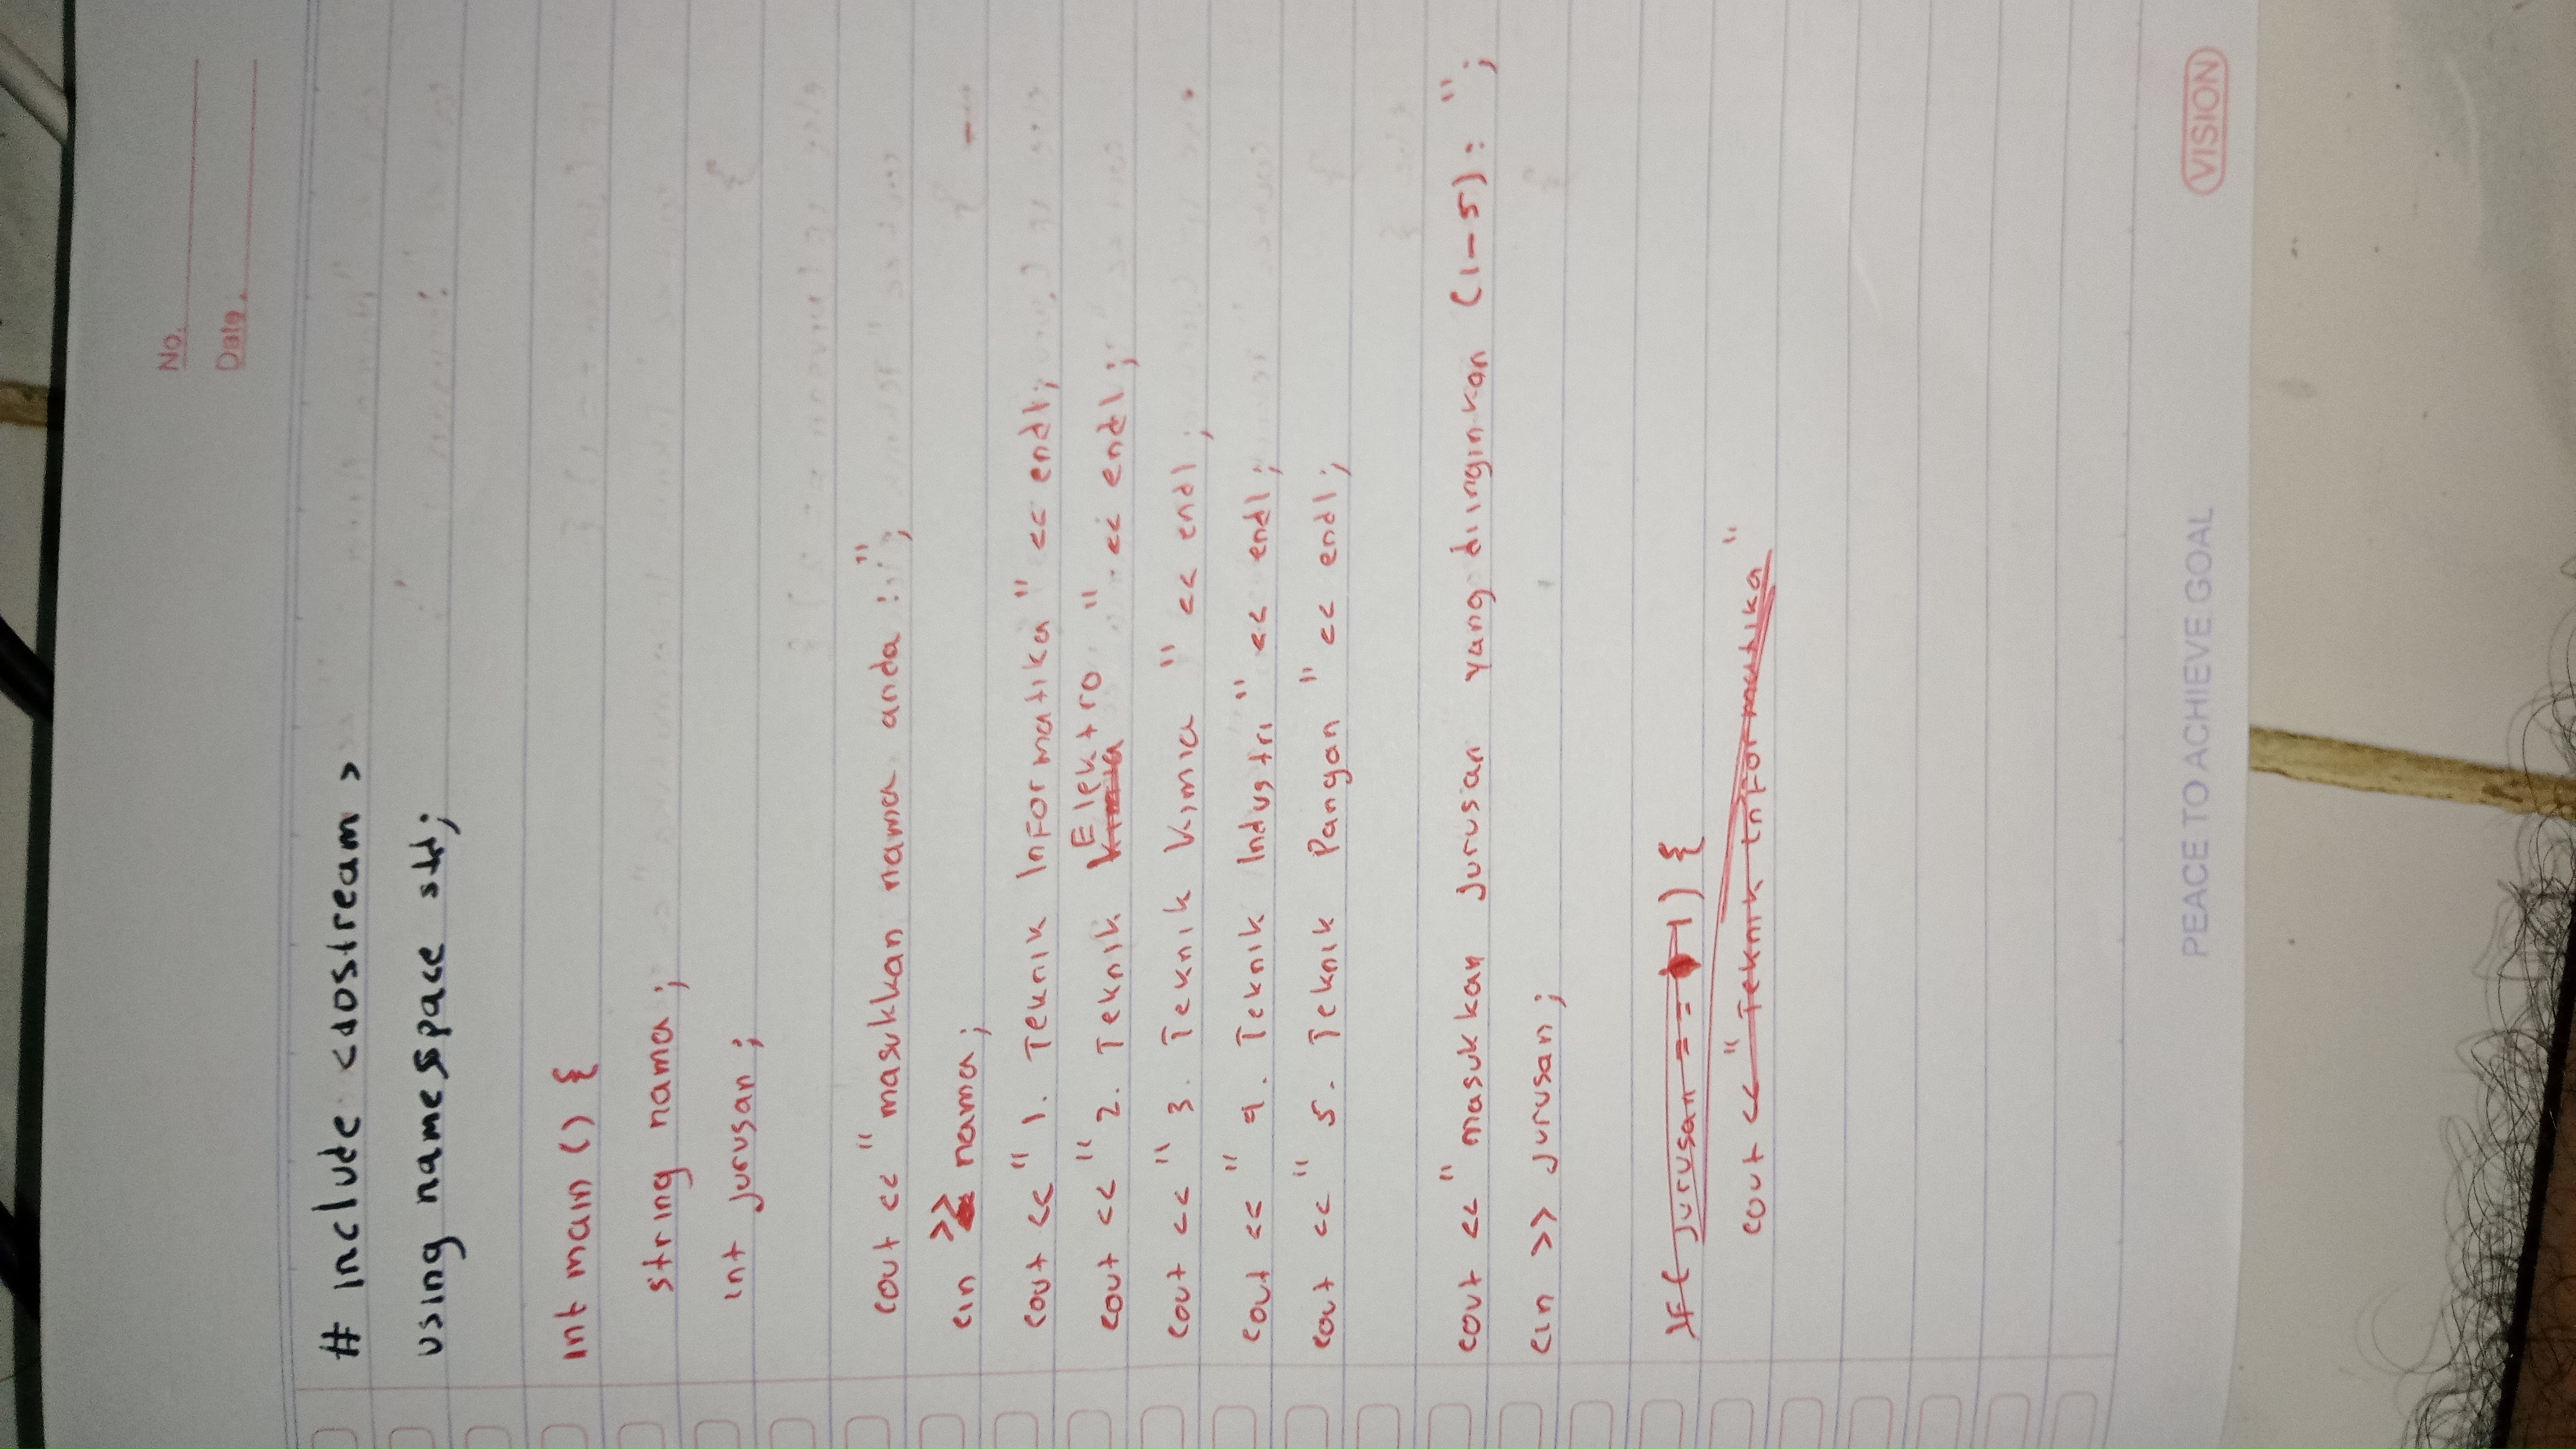 No.
Date.
# include <iostream>
using namespace std;
int main () {
string nama;
int jurusan;
cout << "masukkan nama anda : ";
cin >> nama;
cout << "1. Teknik Informatika" << endl;
cout << "2. Teknik Elektro" << endl;
cout << "3. Teknik Kimia" << endl;
cout << "4. Teknik Industri" << endl;
cout << "5. Teknik Pangan" << endl;
cout << "masukkan jurusan yang diinginkan (1-5): ";
cin >> jurusan;
If (jurusan == 1) {
cout << "Teknik Informatika"
PEACE TO ACHIEVE GOAL
VISION